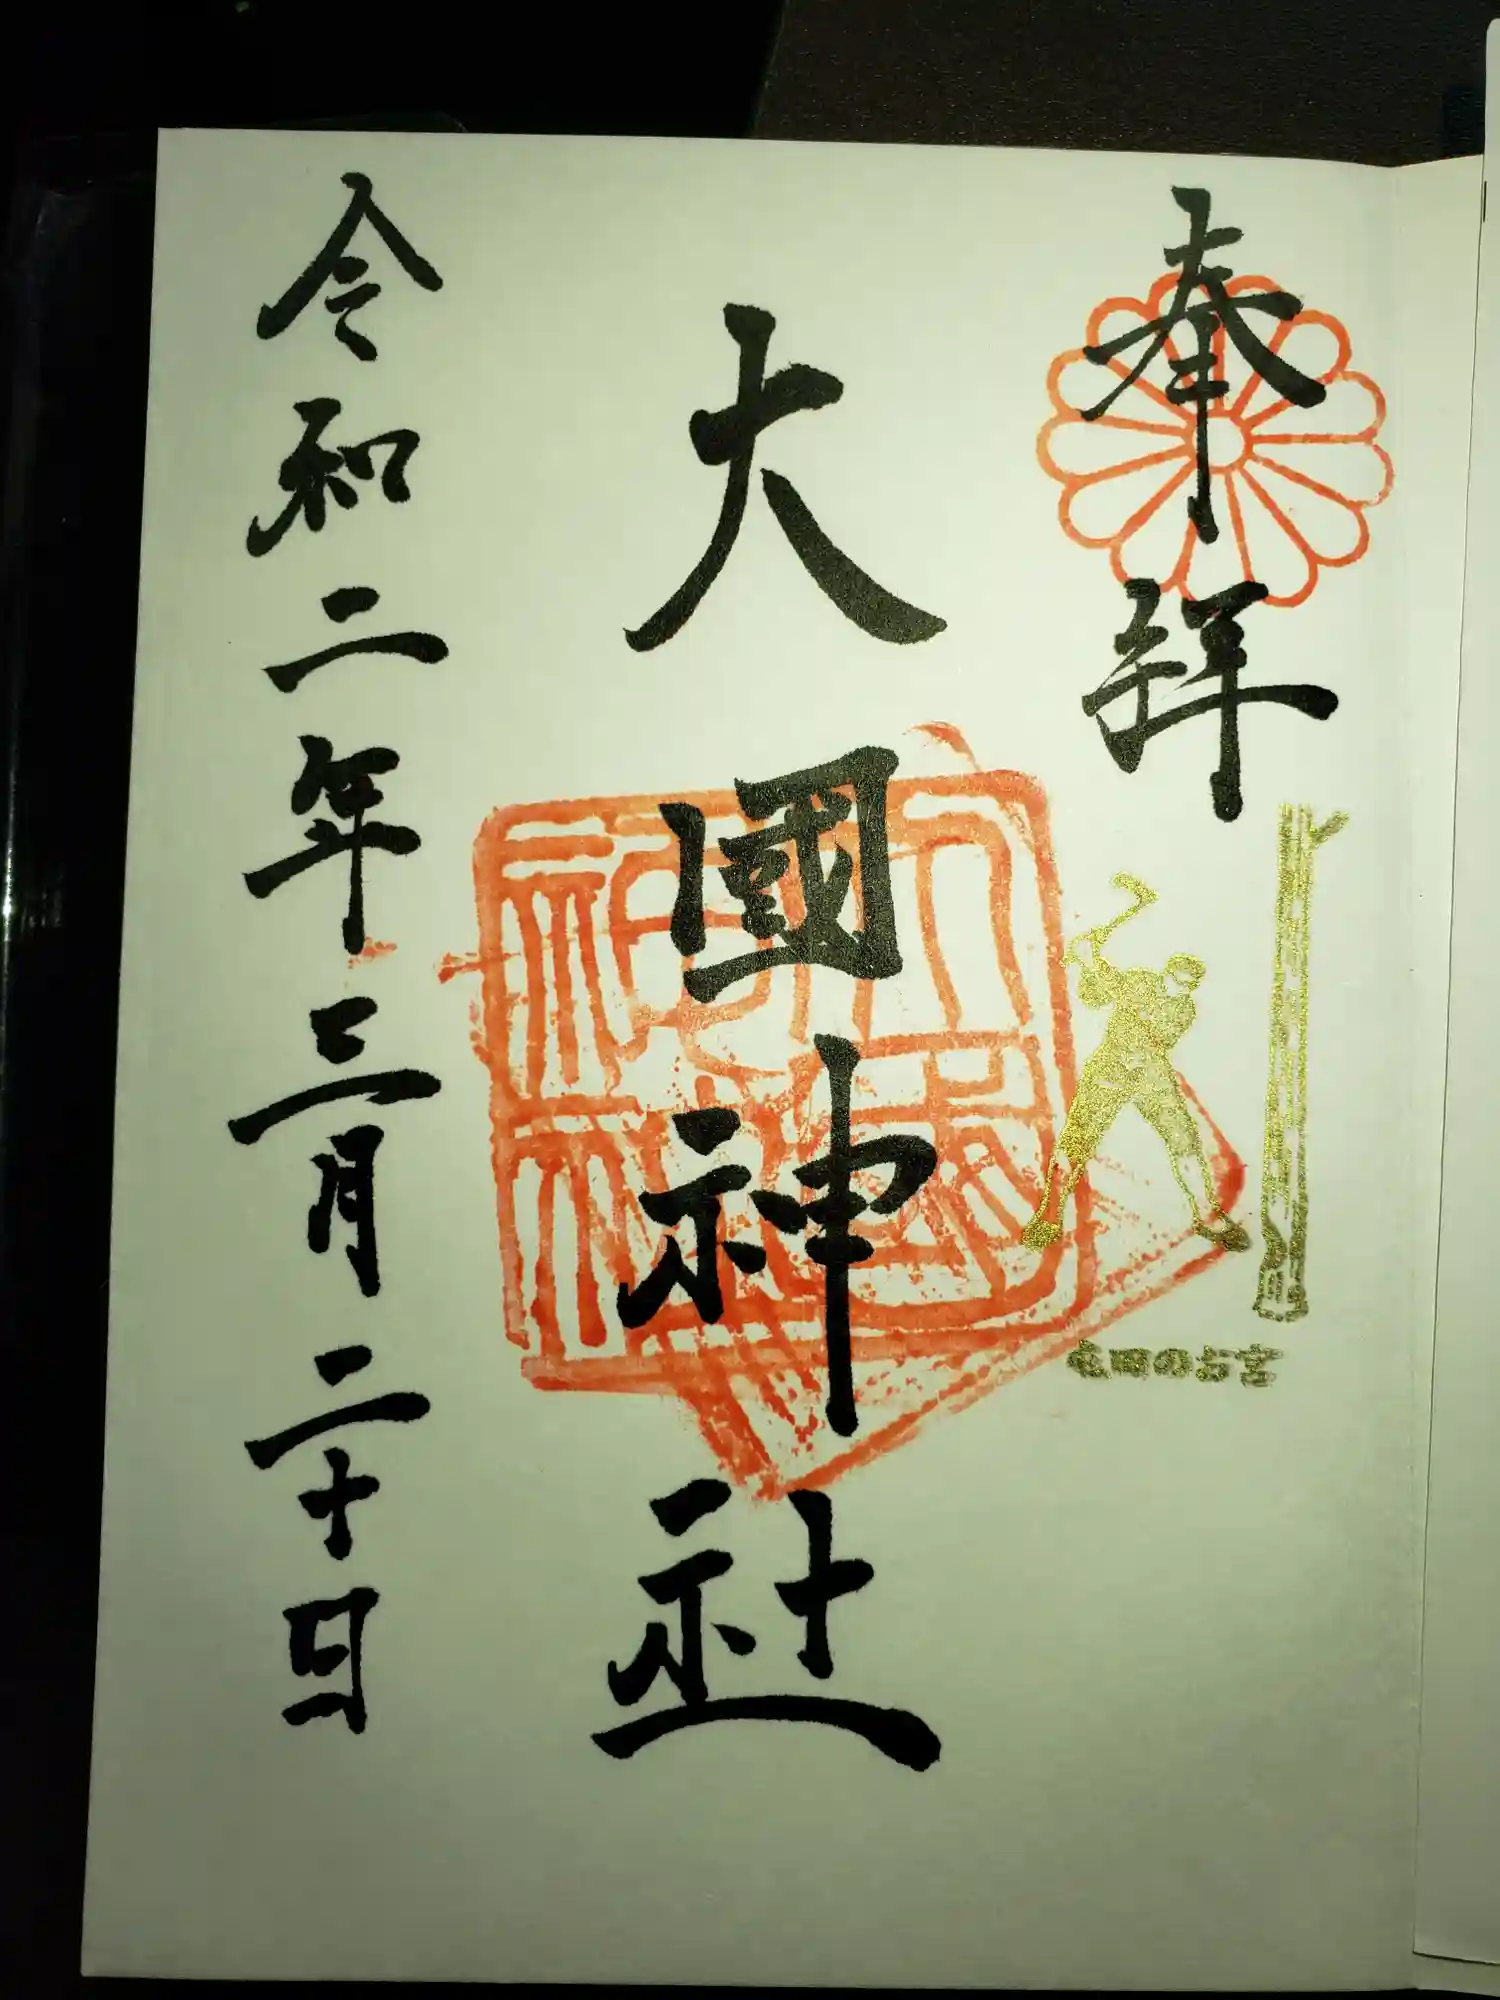 奉拝
大國神社
令和二年三月二十日
屯田のお宮